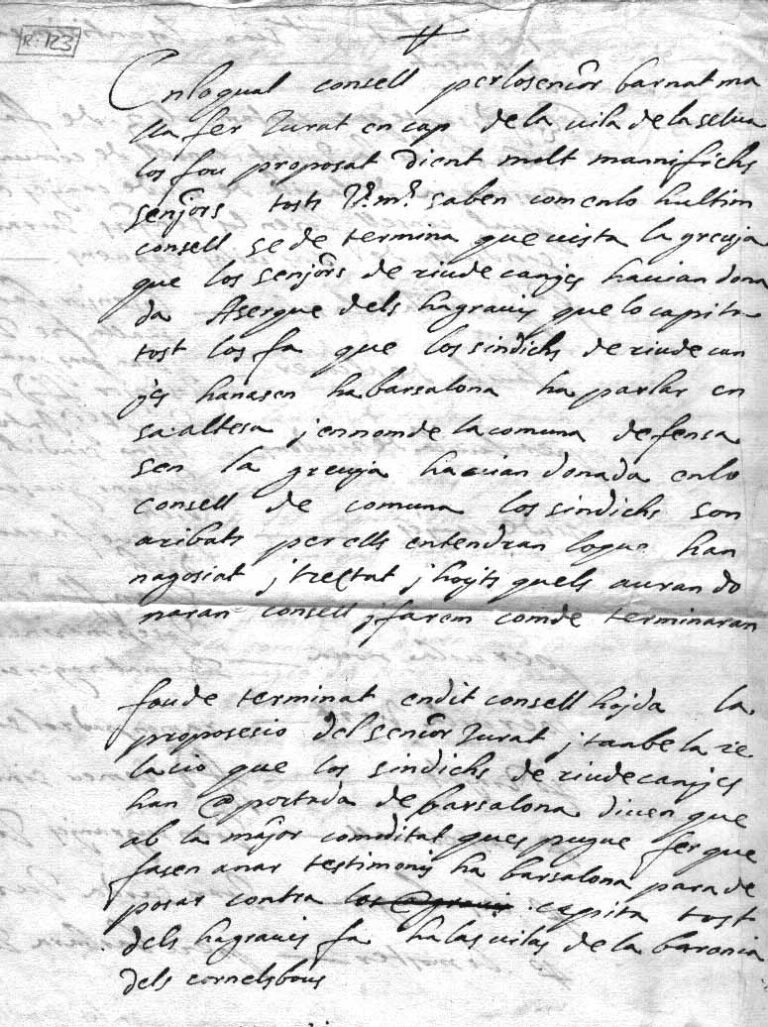 R. 123
En lo qual consell per lo senior barnat ma
lla fer Jurat en cap de la vila de la selva
los fou proposat dient molt mannifichs
senjors tots V.s m.s saben com en lo hultim
consell se de termina que vista la greuja
que los senjors de riude canjes havian dona
da Aserque dels hagravis que lo capita
tost los fa que los sindichs de riude can
jes hanasen ha barsalona ha parlar en
sa altesa j en nom de la comuna defensa
sen la greuja havian donada en lo
consell de comuna los sindichs son
aribats per ells entendran lo que han
nagosiat j trectat j hojts quels auran do
naran consell j farem com de terminaran
fou de terminat en dit consell hojda la
proposesio del senior Jurat j tanbe la re
lacio que los sindichs de riude canjes
han aportada de barsalona diuen que
ab la major comditat ques pugue fer que
fasen anar testimonis ha barsalona para de
posar contra los agravis capita tost
dels hagravis fa ha las vilas de la baronia
dels cornelsbous